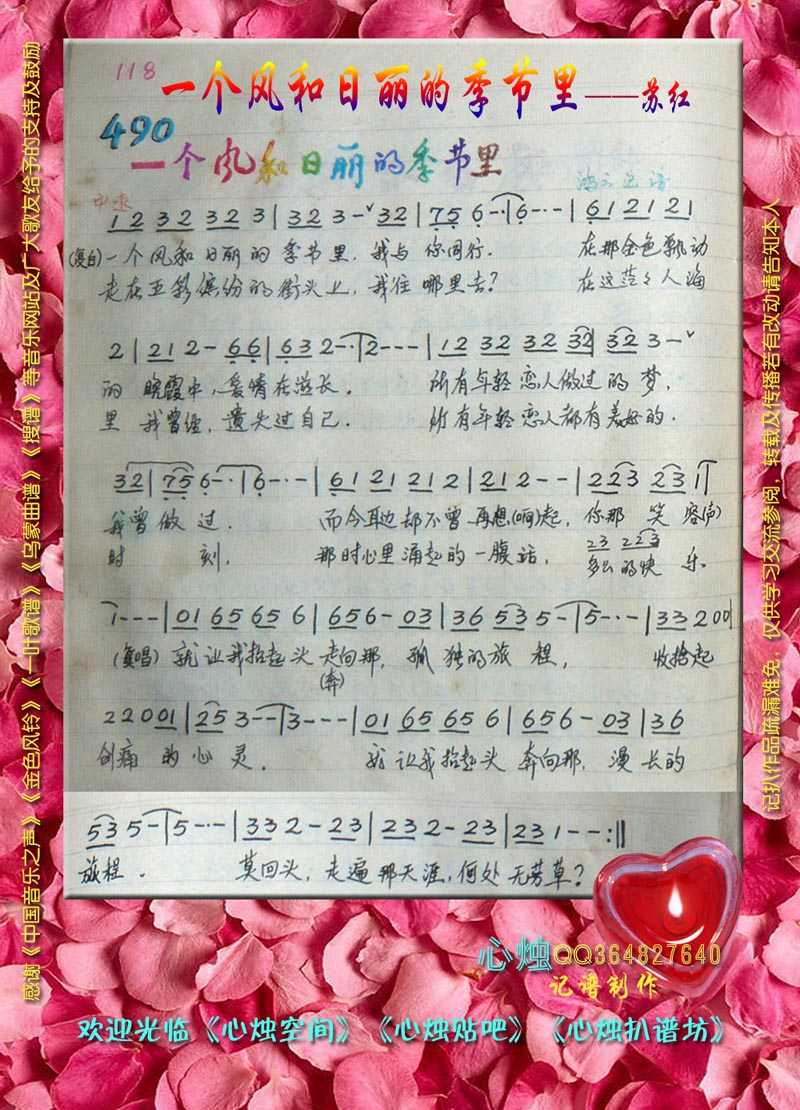 118
一个风和日丽的季节里——苏红
490
一个风和日丽的季节里
中速
1 2 3 2 3 2 3 | 3 2 3 - ˅ 3 2 | 7 5 6 - | 6 - · - | 6 1 2 1 2 1
(复白)一个风和日丽的季节里，我与你同行. 在那金色飘动
走在五彩缤纷的街头上，我往哪里去？ 在这茫々人海
2 | 2 1 2 - 6 6 | 6 3 2 - · | 2 - - - | 1 2 3 2 3 2 3 2 | 3 2 3 - ˅
的晚霞中，爱情在滋长. 所有年轻恋人做过的梦，
里我曾经，遗失过自己. 所有年轻恋人都有美好的.
3 2 | 7 5 6 - · | 6 - · - | 6 1 2 1 2 1 2 | 2 1 2 - - | 2 2 3 2 3 1 |
我曾做过. 而今耳边却不曾再想(响)起，你那笑容(声)
2 3 2 2 3
时刻， 那时心里涌起的一腹话， 多么的快乐.
1 - - - | 0 1 6 5 6 5 6 | 6 5 6 - 0 3 | 3 6 5 3 5 - | 5 - · - | 3 3 2 0 0 |
(复唱)就让我抬起头走向那，孤独的旅程， 收拾起
(奔)
2 2 0 0 1 | 2 5 3 - - | 3 - - - | 0 1 6 5 6 5 6 | 6 5 6 - 0 3 | 3 6
创痛的心灵. 就让我抬起头奔向那，漫长的
5 3 5 - | 5 - · - | 3 3 2 - 2 3 | 2 3 2 - 2 3 | 2 3 1 - - :‖
旅程. 莫回头，走遍那天涯，何处无芳草？
心烛QQ364827640
记谱制作
欢迎光临《心烛空间》《心烛贴吧》《心烛扒谱坊》
感谢《中国音乐之声》《金色风铃》《一叶歌谱》《乌蒙曲谱》《搜谱》等音乐网站及广大歌友给予的支持及鼓励
记扒作品疏漏难免，仅供学习交流参阅，转载及传播若有改动请告知本人